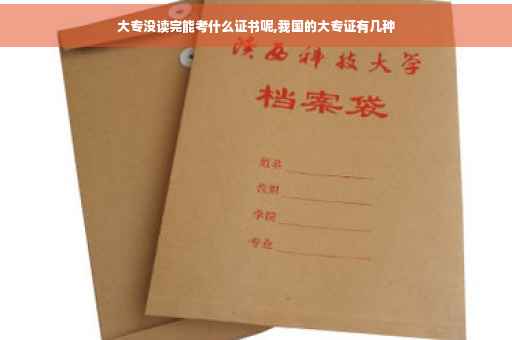 大专没读完能考什么证书呢,我国的大专证有几种
陕西科技大学
档案袋
姓名
性别
学院
专业